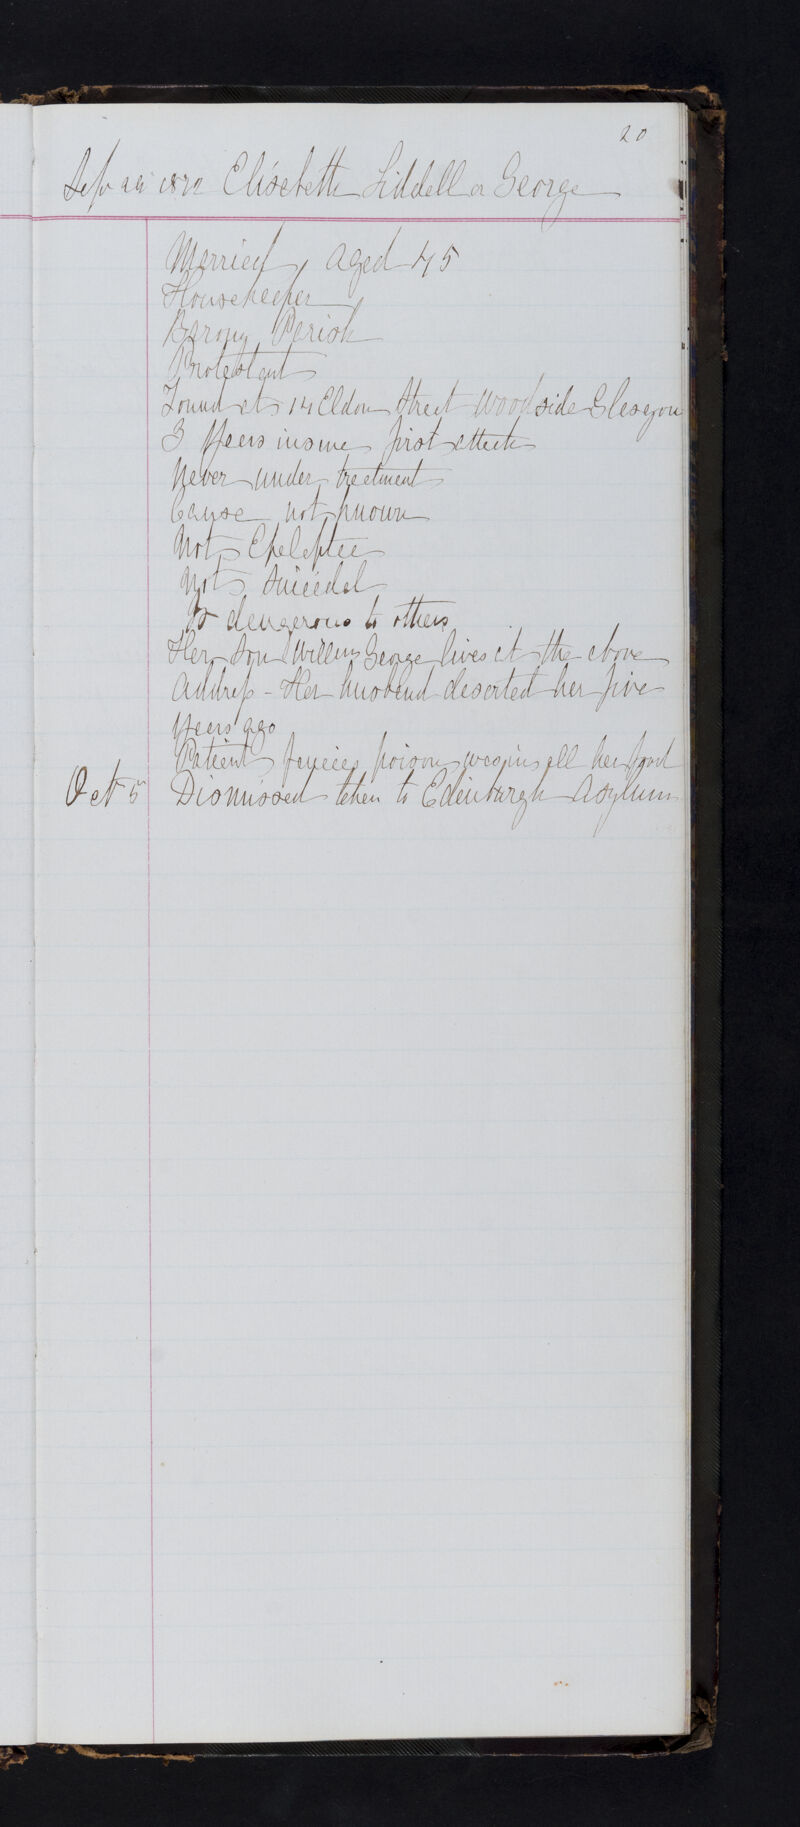 20
Sep 1872 Elisebeth Liddell or George
Married aged 45
Housekeeper
Barony Parish
Protestant
Found at 14 Eldon Street Woodside Glasgow
3 Years insane first attack
Never under treatment
Cause not known
Not Epeleptic
Not Suicidal
Is dangerous to others
Her Son William George lives at the above
Address - Her husband deserted her five
Years ago
Patient fancies poison was in all her food
Oct 5 Dismissed taken to Edinburgh Asylum